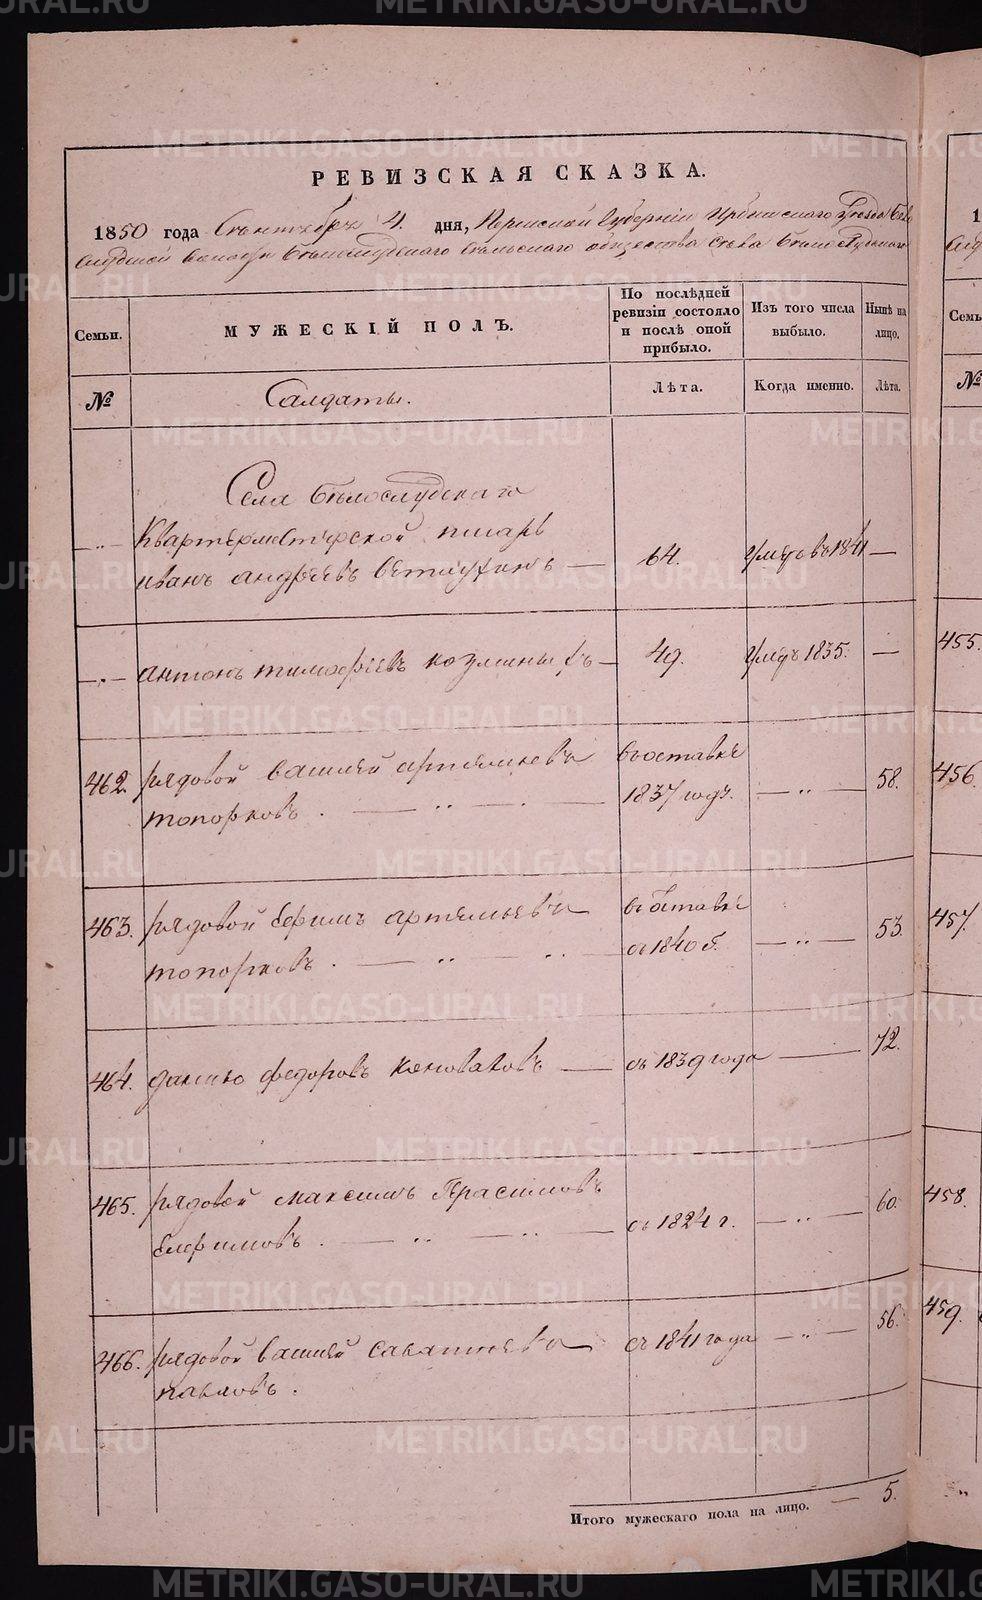 РЕВИЗСКАЯ СКАЗКА.
1850 года Сентября 4. дня, Пермской Губернiи Ирбитского Уѣзда Бѣло
слудской волости Бѣлослудского Сельского общества села Бѣлослудского
Семьи.
МУЖЕСКIЙ ПОЛЪ.
По послѣдней ревизiи состояло и послѣ оной прибыло.
Изъ того числа выбыло.
Нынѣ на лицо.
№
Салдаты.
Лѣта.
Когда именно.
Лѣта.
Села Бѣлослудскаго
—„— Квартермейстрской писарь
иванъ андрѣевъ — 64. умеръ въ 1841 —
—„— антонъ тимофѣевъ козминыхъ — 49. умеръ 1835. —
462. рядовой васшлей артемьевъ въ оставкѣ
топорковъ . — „ — 1837 годъ. — „ — 58.
463. рядовой Ефимъ артемьевъ въ оставкѣ
топорковъ . — „ — „ — съ 1840 г. — „ — 53.
464. данило федоровъ коноваловъ — съ 1839 года — 72.
465. рядовой максимъ Герасимовъ
Елфимовъ . — „ — „ — съ 1824 г. — „ — 60.
466. рядовой васшлей саватѣевъ съ 1841 года — „ — 56.
павловъ .
Итого мужескаго пола на лицо. — 5.
455.
456.
457.
458.
459.
METRIKI.GASO-URAL.RU